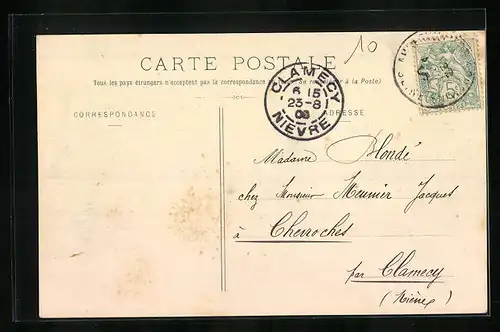 10
CARTE POSTALE
Tous les pays étrangers n'acceptent pas la correspondance (Se renseigner à la Poste)
CORRESPONDANCE
ADRESSE
CLAMECY
6 15
23-8
08
NIEVRE
Madame Blondé
chez Monsieur Meunier Jacques
à Chevroches
par Clamecy
(Nièvre)